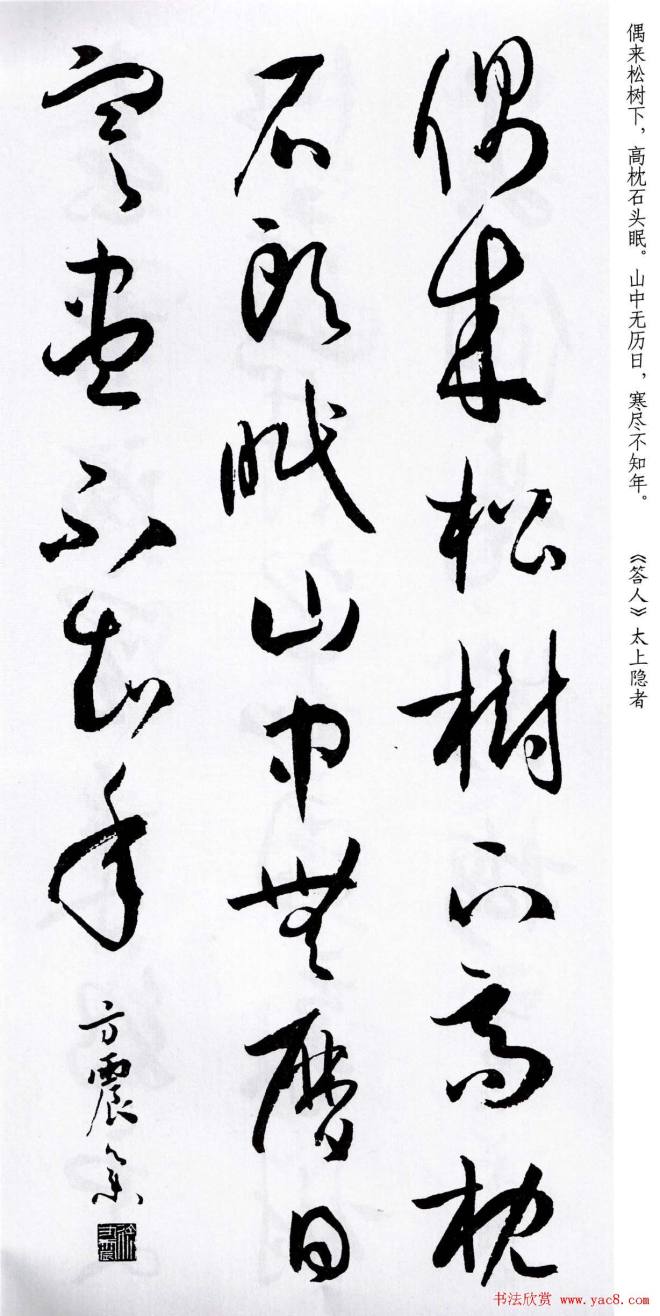 偶来松树下，高枕石头眠。山中无历日，寒尽不知年。 《答人》太上隐者
偶来松樹下高枕
石头眠山中無曆日
寒尽不知年
方震筆
书法欣赏 www.yac8.com